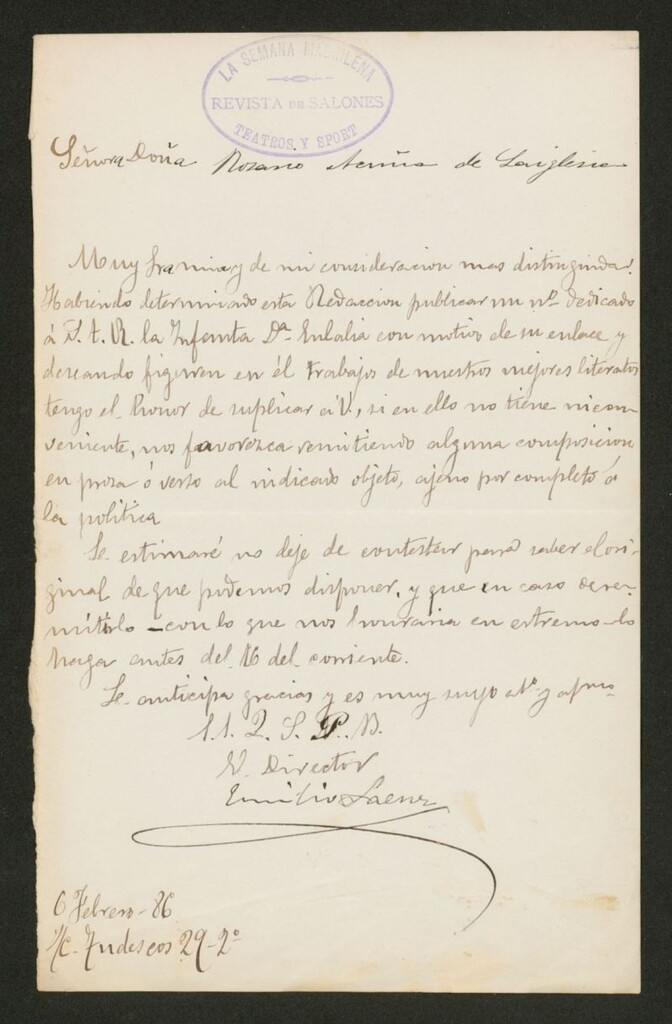 LA SEMANA MADRILEÑA
REVISTA DE SALONES
TEATROS Y SPORT
Señora Doña Rosario Acuña de Laiglesia
Muy Sra mia y de mi consideracion mas distinguida:
Habiendo determinado esta Redaccion publicar un nº dedicado
á S. A. R. la Infanta Dª Eulalia con motivo de su enlace y
deseando figuren en él trabajos de nuestros mejores literatos
tengo el honor de suplicar á V, si en ello no tiene incon-
veniente, nos favorezca remitiendo alguna composicion
en prosa ó verso al indicado objeto, ajeno por completo á
la politica
Le estimaré no deje de contestar para saber el ori-
ginal de que podemos disponer, y que en caso de re-
mitirlo - con lo que nos honraria en estremo - lo
haga antes del 16 del corriente.
Le anticipa gracias y es muy suyo atº y afmo
S. S. Q. S. P. B.
El Director
Emilio Saenz
6 Febrero - 86
S/c. Tudescos 29-2º